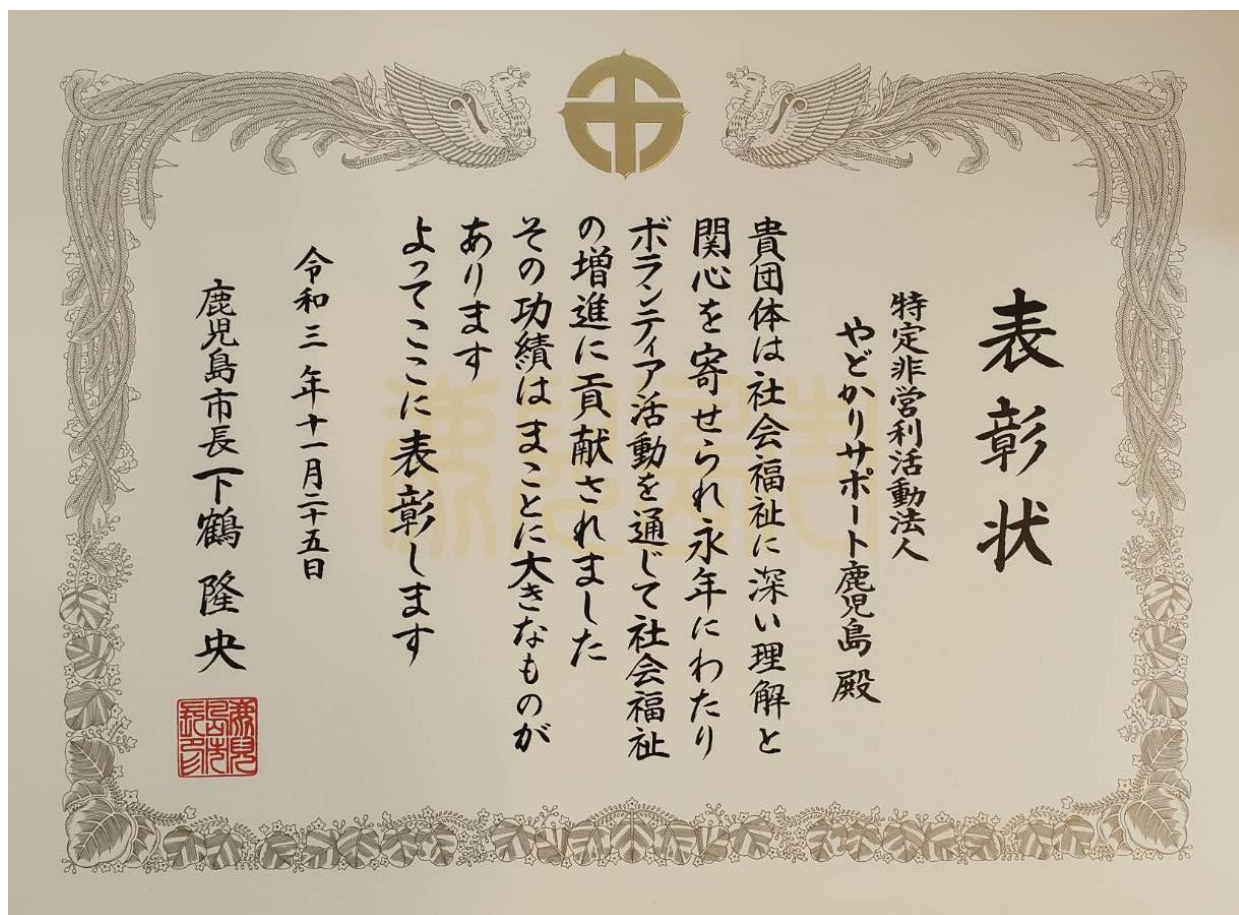 表彰状
特定非営利活動法人
やどかりサポート鹿児島 殿
貴団体は社会福祉に深い理解と
関心を寄せられ永年にわたり
ボランティア活動を通じて社会福祉
の増進に貢献されました
その功績はまことに大きなものが
あります
よってここに表彰します
令和三年十一月二十五日
鹿児島市長 下鶴 隆央
鹿児島市長印